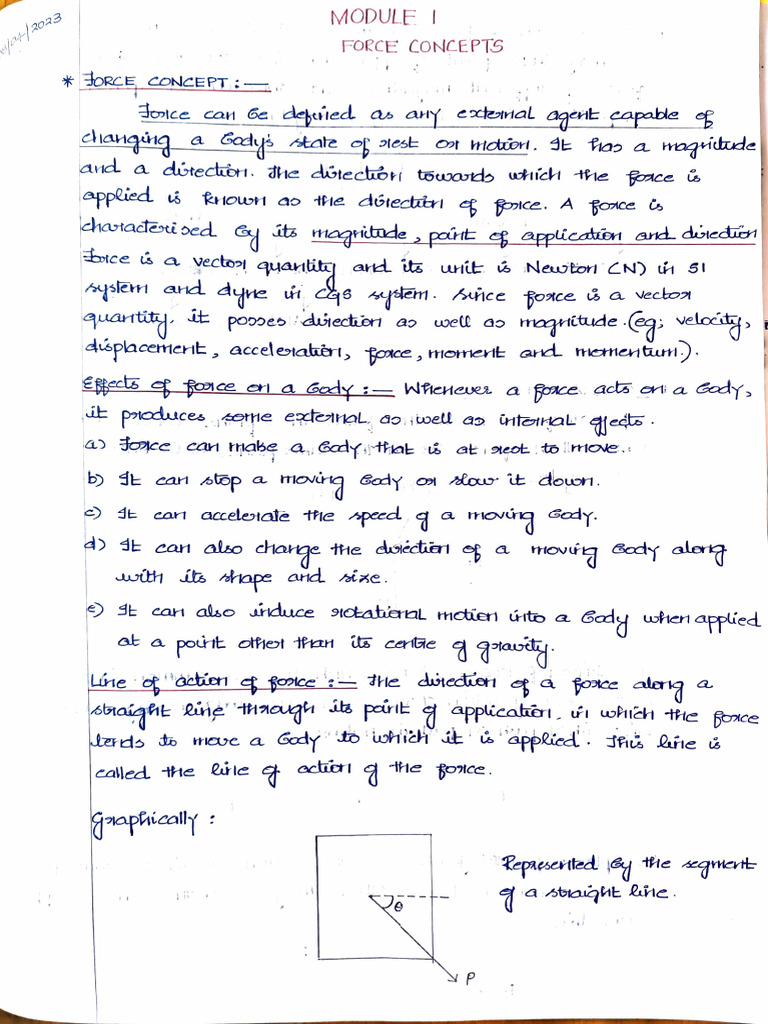 MODULE 1
FORCE CONCEPTS
* FORCE CONCEPT :—
Force can be defined as any external agent capable of
changing a body's state of rest or motion. It has a magnitude
and a direction. The direction towards which the force is
applied is known as the direction of force. A force is
characterised by its magnitude, point of application and direction
Force is a vector quantity and its unit is Newton (N) in SI
system and dyne in CGS system. Since force is a vector
quantity, it posses direction as well as magnitude. (eg; velocity,
displacement, acceleration, force, moment and momentum.).
Effects of force on a body :— Whenever a force acts on a body,
it produces some external as well as internal effects.
a) Force can make a body that is at rest to move.
b) It can stop a moving body or slow it down.
c) It can accelerate the speed of a moving body.
d) It can also change the direction of a moving body along
with its shape and size.
e) It can also induce rotational motion into a body when applied
at a point other than its centre of gravity.
Line of action of force :— The direction of a force along a
straight line through its point of application, in which the force
tends to move a body to which it is applied. This line is
called the line of action of the force.
Graphically :
Represented by the segment
of a straight line.
θ
P